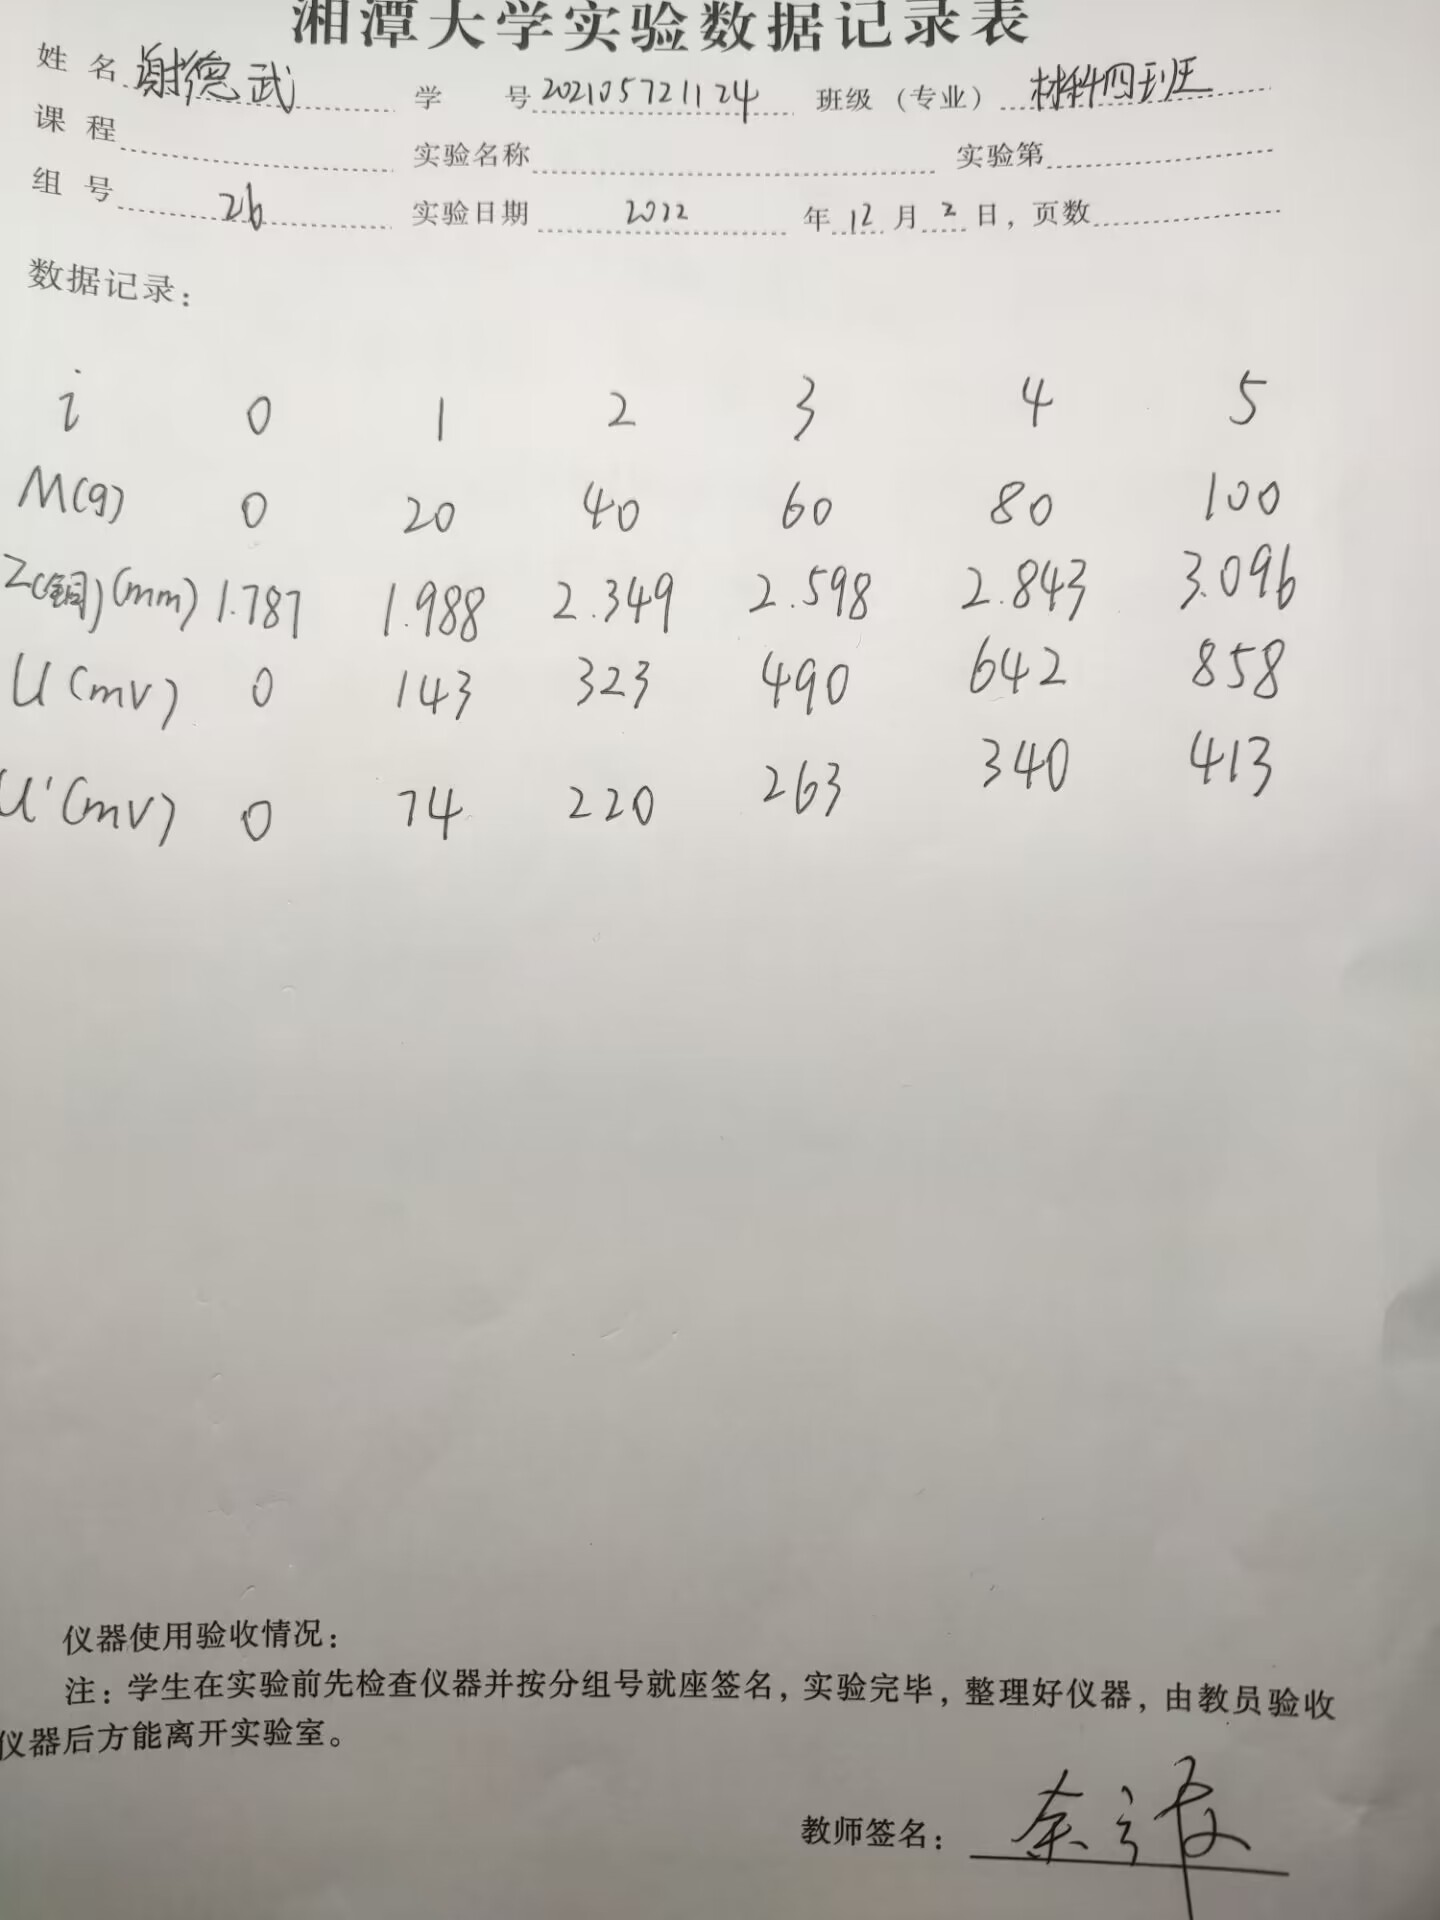 湘潭大学实验数据记录表
姓 名 谢德武 学 号 202105721124 班级（专业） 材料四班
课 程 实验名称 实验第
组 号 26 实验日期 2022 年 12 月 2 日，页数
数据记录：
i 0 1 2 3 4 5
M(g) 0 20 40 60 80 100
Z(铜)(mm) 1.787 1.988 2.349 2.598 2.843 3.096
U(mV) 0 143 323 490 642 858
U'(mV) 0 74 220 263 340 413
仪器使用验收情况：
注：学生在实验前先检查仪器并按分组号就座签名，实验完毕，整理好仪器，由教员验收
仪器后方能离开实验室。
教师签名：